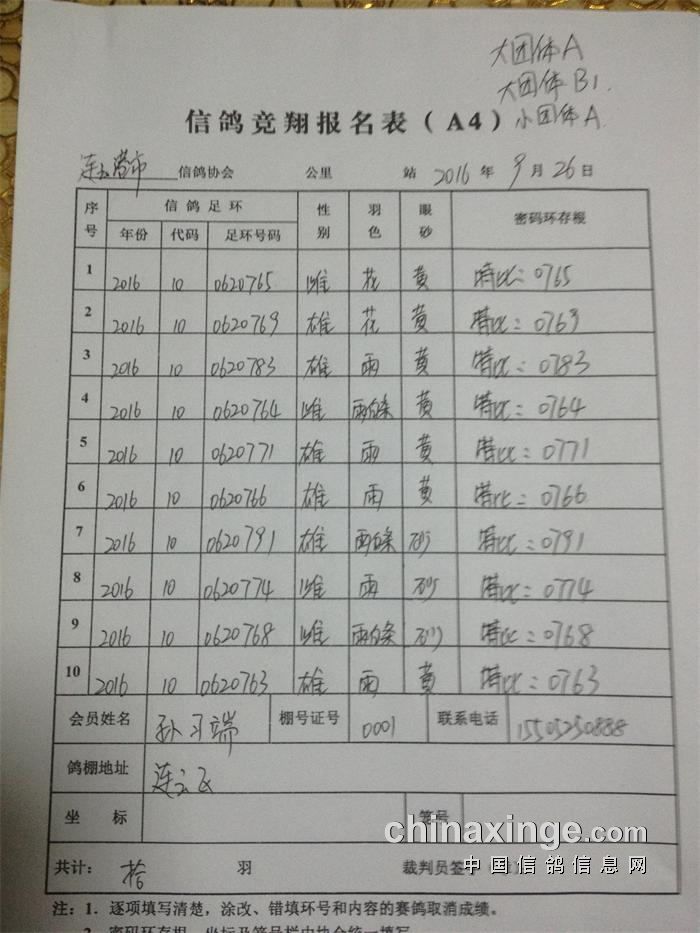 大团体A
大团体B1.
小团体A
信鸽竞翔报名表（A4）
连云港市 信鸽协会 公里 站 2016 年 9 月 26 日
序号 信鸽足环 性别 羽色 眼砂 密码环存根
年份 代码 足环号码
1 2016 10 0620765 雌 花 黄 特比：0765
2 2016 10 0620769 雄 花 黄 特比：0769
3 2016 10 0620783 雄 雨 黄 特比：0783
4 2016 10 0620764 雌 雨白条 黄 特比：0764
5 2016 10 0620771 雄 雨 黄 特比：0771
6 2016 10 0620766 雄 雨 黄 特比：0766
7 2016 10 0620791 雄 雨白条 砂 特比：0791
8 2016 10 0620774 雌 雨 砂 特比：0774
9 2016 10 0620768 雌 雨白条 砂 特比：0768
10 2016 10 0620763 雄 雨 黄 特比：0763
会员姓名 孙习端 棚号证号 0001 联系电话 15505250888
鸽棚地址 连云区
坐标 笼号
共计： 拾 羽 裁判员签字
chinaxinge.com
中国信鸽信息网
注：1．逐项填写清楚，涂改、错填环号和内容的赛鸽取消成绩。
2．密码环存根、坐标及笼号栏由协会统一填写